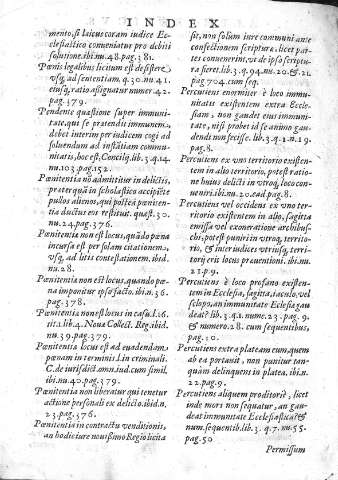 INDEX
mento, si laicus coram iudice Ec-
clesiastico comueniatur pro debiti
solutione. ibi. nu. 48. pag. 381.
Pœnis legalibus licitum est desistere
vsq; ad sententiam. q. 30. nu. 41.
eiusq; ratio assignatur numer. 42.
pag. 379.
Pendente quæstione super immuni-
tate, qui se prætendit immunem,
debet interim per iudicem cogi ad
soluendum ad instātiam commu-
nitatis, hoc est, Concilij. lib. 3. q. 14.
nu. 103. pag. 152.
Pœnitentia nō admittitur in delictis,
præterquā in scholastico accipiēte
pullos alienos, qui posteà pœniten-
tia ductus eos restituit. quæst. 30.
nu. 24. pag. 376.
Pœnitentia non est locus, quādo pœna
incursa est per solam citationem,
vsq; ad litis contestationem. ibid.
nu. 28.
Pœnitentia non est locus, quando pœ-
na imponitur ipso facto. ibi. n. 36.
pag. 378.
Pœnitentiæ non est locus in casu l. 16.
tit. 1. lib. 4. Noua Collect. Reg. ibid.
nu. 39. pag. 379.
Pœnitentiæ locus est ad euadendam
pœnam in terminis l. in criminali.
C. de iurisdict. omn. iud. cum simil.
ibi. nu. 40. pag. 379.
Pœnitentia non liberatur qui tenetur
actione personali ex delicto. ibid. n.
23. pag. 376.
Pœnitentia in contractu venditionis,
an hodie iure nouissimo Regio licita
sit, non solùm inre communi ante
confectionem scripturæ, licet par-
tes conuenerint, vt de ipso scriptu-
ra fieret. lib. 3. q. 94. nu. 20. & 21
pag. 704. cum seq.
Percutiens enormiter è loco immu-
nitatis existentem extra Eccle-
siam, non gaudet eius immuni-
tate, nisi probet id se animo gau-
dendi non fecisse. lib. 3. q. 1. n. 19.
pag. 8.
Percutiens ex vno territorio existen-
tem in alio territorio, potest ratio-
ne huius delicti in vtroq; loco con-
ueniri. ibi. nu. 20. ead. pag. 8.
Percutiens vel occidens ex vno ter-
ritorio existentem in alio, sagitta
emissa vel exoneratione archibus-
chi, potest puniri in vtroq; territo-
rio, & interiudices vtriusq; terri-
torij erit locus præuentioni. ibi. nu.
21. p. 9.
Percutiens è loco profano existen-
tem in Ecclesia, sagitta, iaculo, vel
sclopo, an immunitate Ecclesiæ gau-
deat? lib. 3. q. 1. nume. 23. pag. 9.
& numero. 28. cum sequentibus,
pag. 10.
Percutiens extra plateam eum, quem
ab ea portauit, non punitur tan-
quàm delinquens in platea. ibi. n.
22. pag. 9.
Percutiens aliquem proditoriè, licet
inde mors non sequatur, an gau-
deat immunitate Ecclesiastica? &
num. sequentib. lib. 3. q. 7. nu. 55.
pag. 50
Permissum